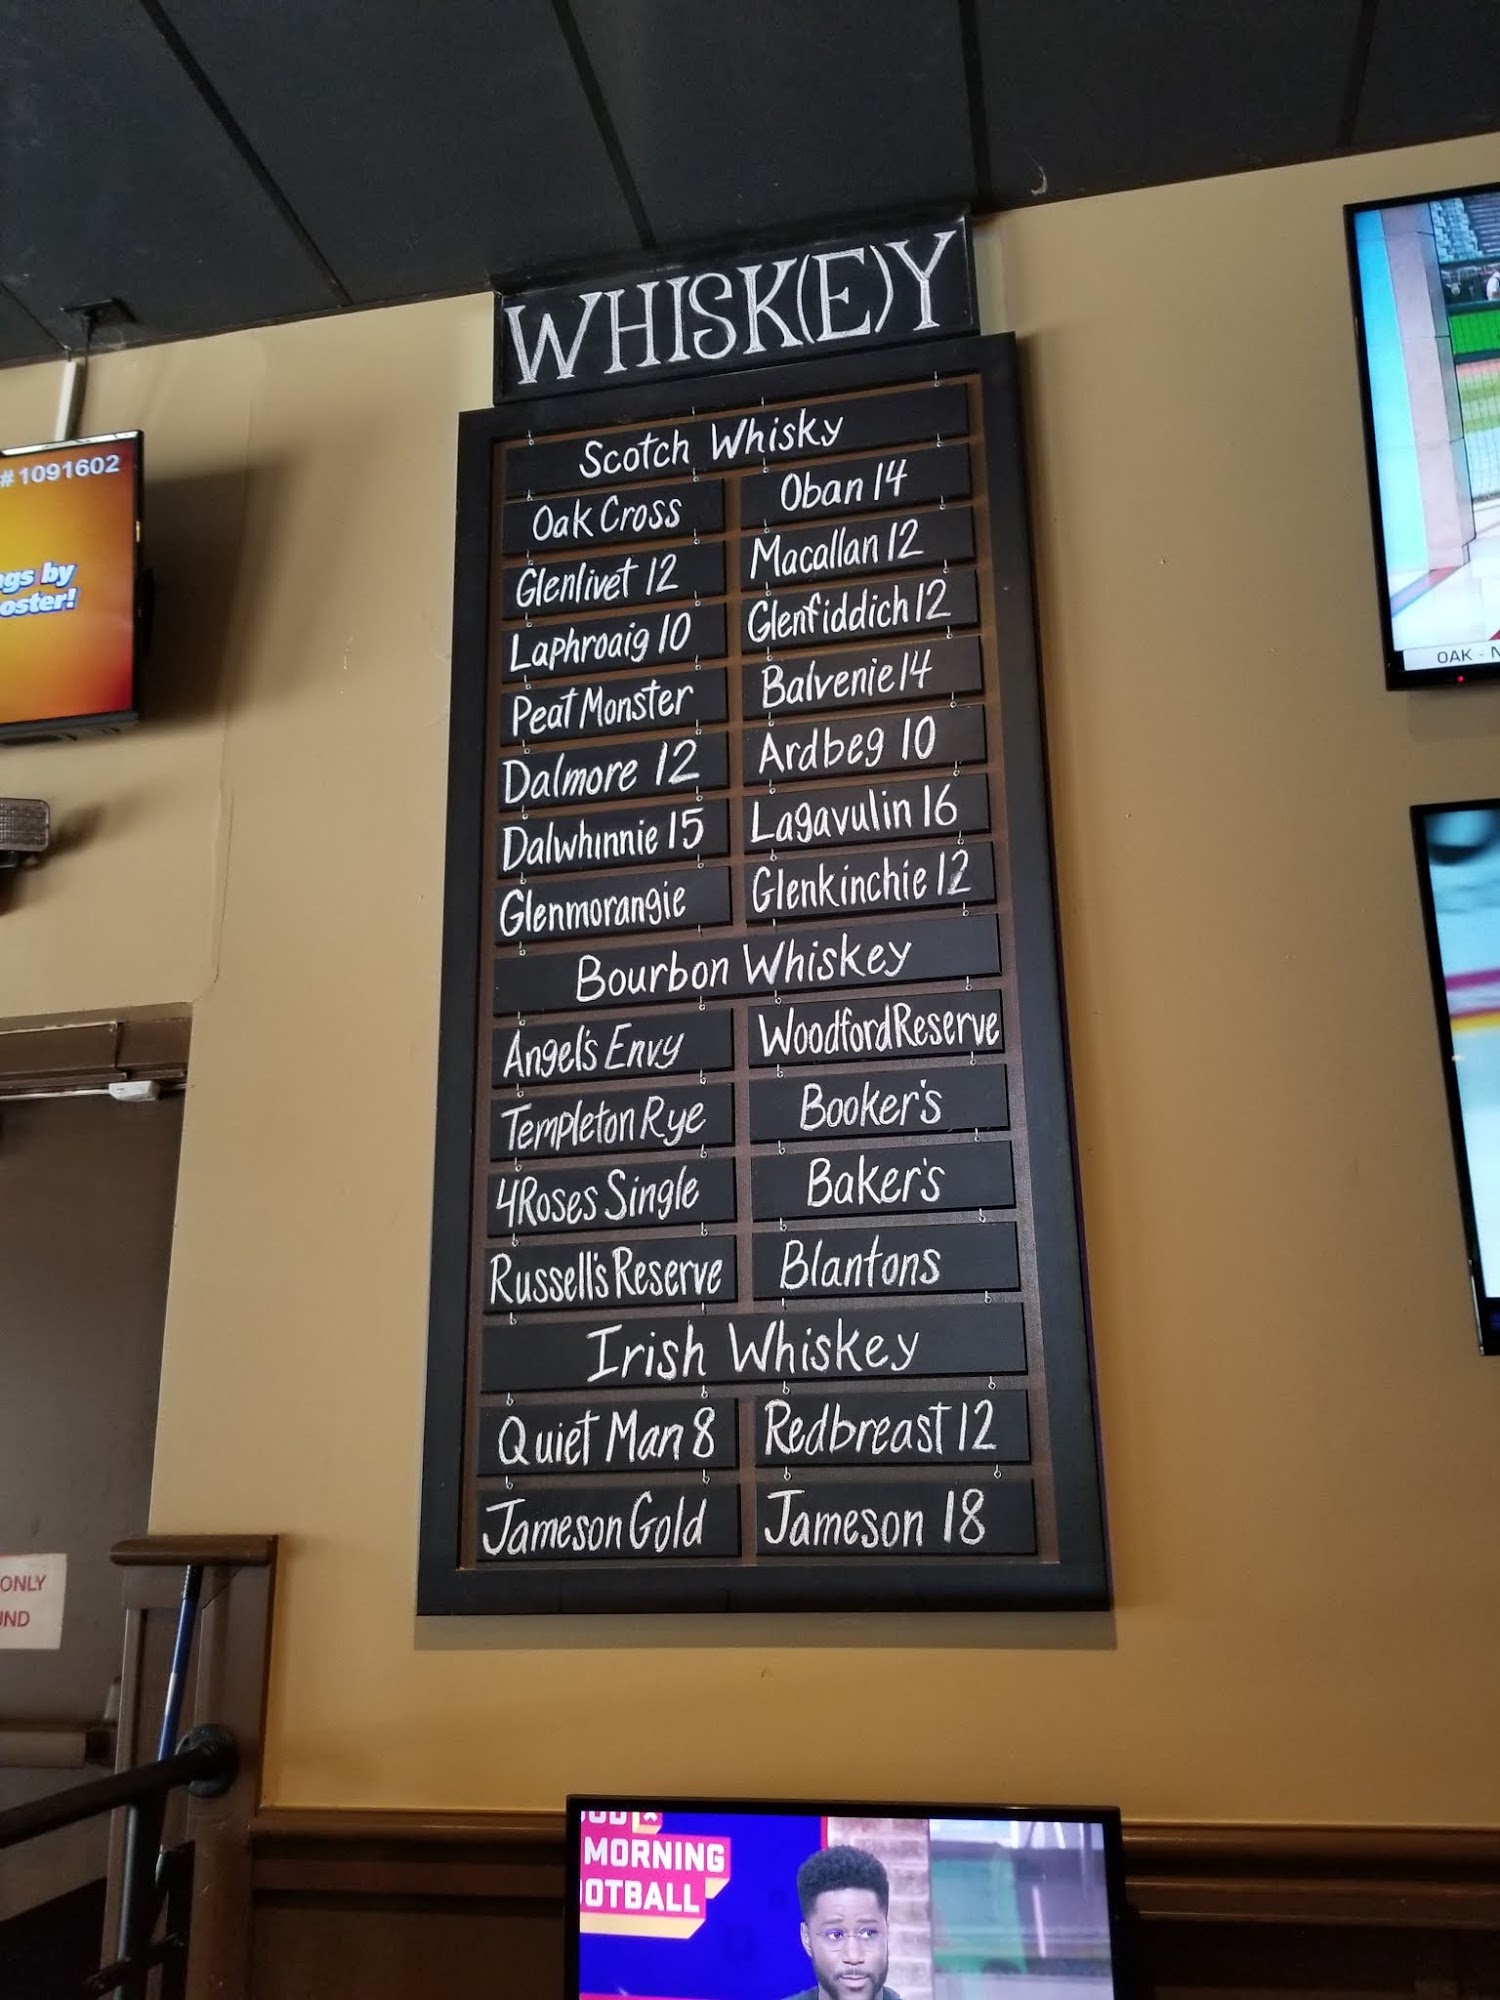 WHISK(E)Y
Scotch Whisky
Oak Cross
Oban 14
Glenlivet 12
Macallan 12
Laphroaig 10
Glenfiddich 12
Peat Monster
Balvenie 14
Dalmore 12
Ardbeg 10
Dalwhinnie 15
Lagavulin 16
Glenmorangie
Glenkinchie 12
Bourbon Whiskey
Angel's Envy
Woodford Reserve
Templeton Rye
Booker's
4 Roses Single
Baker's
Russell's Reserve
Blantons
Irish Whiskey
Quiet Man 8
Redbreast 12
Jameson Gold
Jameson 18
#1091602
ngs by
oster!
OAK - N
ONLY
UND
MORNING
OTBALL